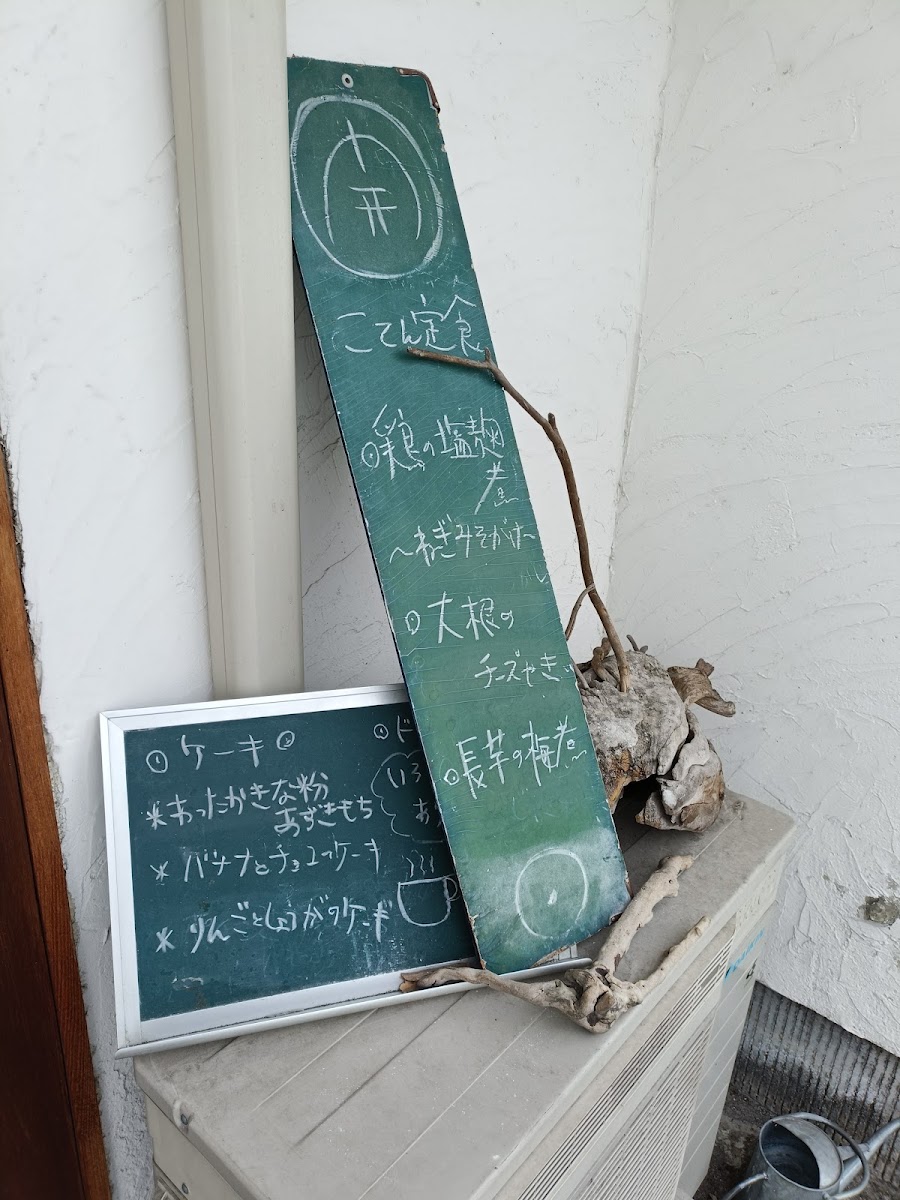 こてん定食
⊙鶏の塩麹
煮
～ねぎみそがけ～
⊙大根の
チーズやき
⊙長芋の梅煮
⊙ケーキ⊙
*あったかきな粉
あずきもち
*バナナとチョコっケーキ
*りんごとしょうがのケーキ
⊙ド
いろ
あ